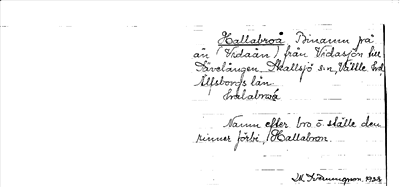 Hallabroå Binamn på
ån (Vidaån) från Vidasjön till
Sävelången, Skallsjö s:n, Vättle hd,
Älfsborgs län.
Namn efter bro o. ställe den
rinner förbi, Hallabron.
1923